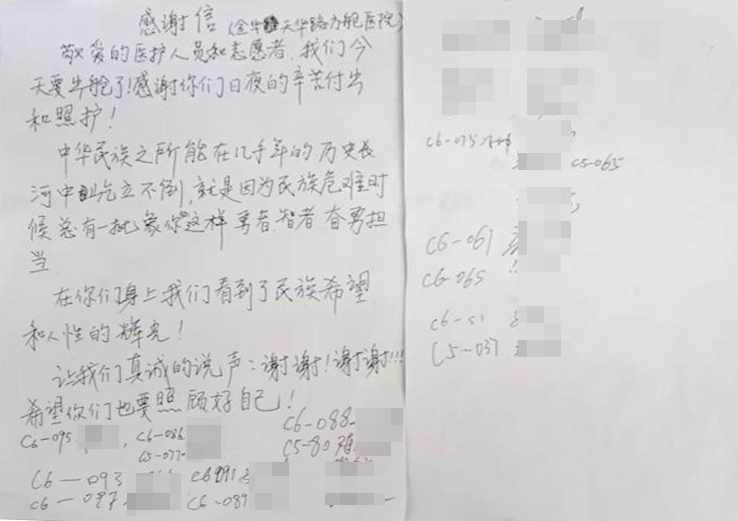 感谢信(金华天华路方舱医院)
敬爱的医护人员和志愿者,我们今
天要出舱了!感谢你们日夜的辛苦付出
和照护!
中华民族之所能在几千年的历史长
河中屹立不倒,就是因为民族危难时
候总有一批象你这样勇者.智者.奋勇担
当
在你们身上我们看到了民族希望
和人性的辉光!
让我们真诚的说声:谢谢!谢谢!!!
希望你们也要照顾好自己!
C6-095, C6-086 C6-088
C5-077 C5-80
C6-093 C6091
C6-097 C6-089
C6-075
C5-065
C6-067
C6-065
C6-51
C5-037